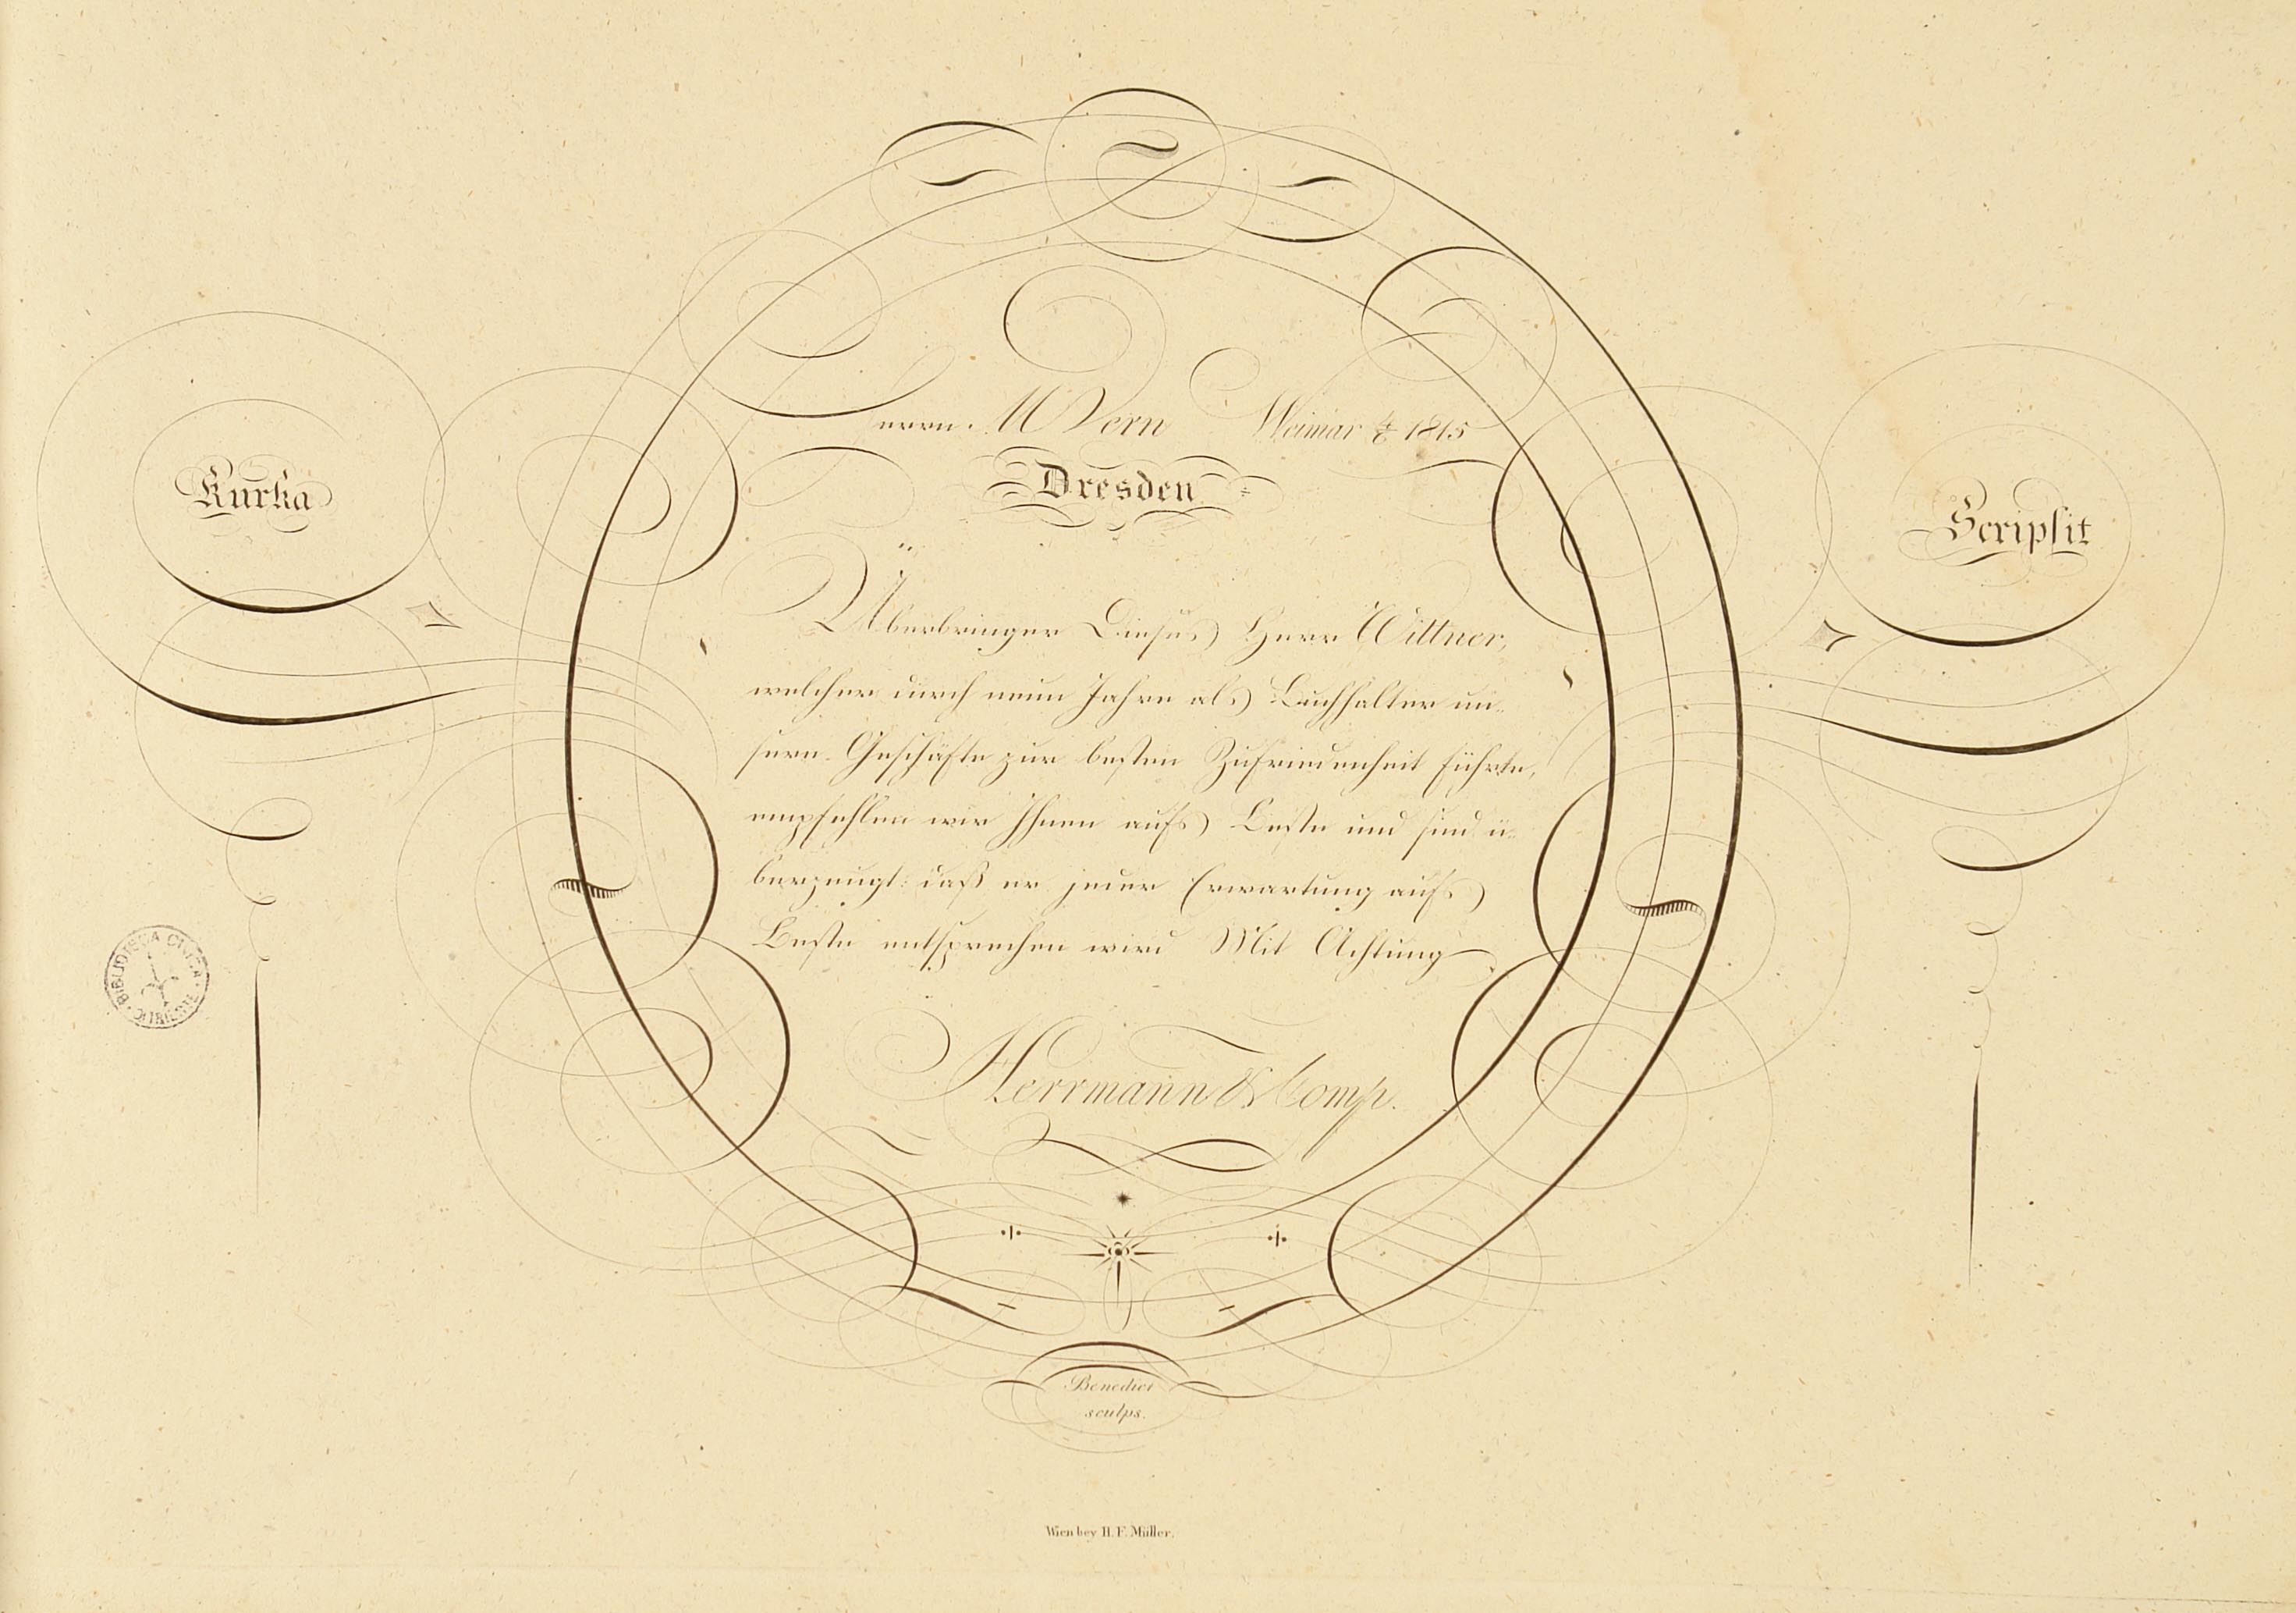 Kurka
Herrn. M Vern Weimar 4/6 1815
Dresden
Scripsit
Überbringer Dieses Herr Wittner,
welcher durch neun Jahre als Buchhalter un-
sere Geschäfte zur besten Zufriedenheit führte,
empfehlen wir Ihnen aufs Beste und sind ü-
berzeugt: daß er jeder Erwartung aufs
Beste entsprechen wird Mit Achtung
Herrmann & Comp.
BIBLIOTECA CIVICA
TRIESTE
Benedict
sculps.
Wien bey H. F. Müller.